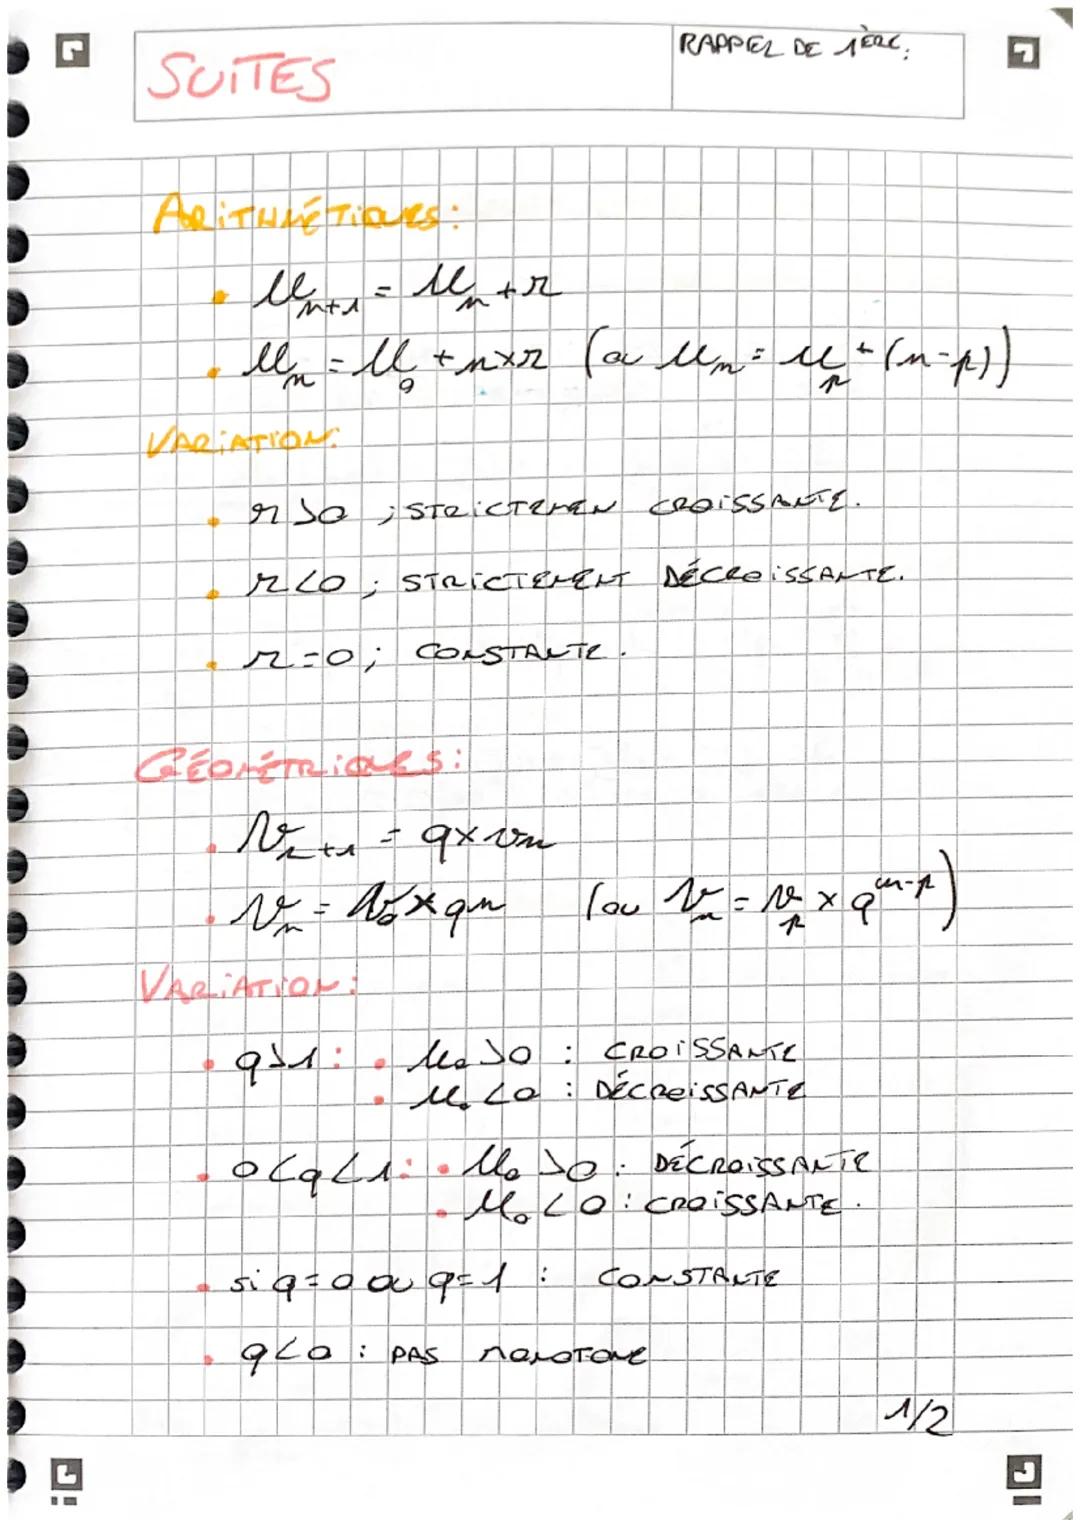 SUITES
RAPPEL DE 1ÈRE:
ARITHMÉTIQUES:
• Uₙ₊₁ = Uₙ + r
• Uₙ = U₀ + n×r (ou Uₙ = Uₚ + (n-p))
VARIATION:
• r > 0 ; STRICTEMEN CROISSANTE.
• r < 0 ; STRICTEMENT DÉCROISSANTE.
• r = 0 ; CONSTANTE.
GÉOMÉTRIQUES:
• Vₙ₊₁ = q × vn
• Vₙ = V₀ × qn (ou Vₙ = Vₚ × qⁿ⁻ᵖ)
VARIATION:
• q > 1 : • U₀ > 0 : CROISSANTE
• U₀ < 0 : DÉCROISSANTE
• 0 < q < 1 : • U₀ > 0 : DÉCROISSANTE
• U₀ < 0 : CROISSANTE.
• si q = 0 ou q = 1 : CONSTANTE
• q < 0 : PAS MONOTONE
1/2